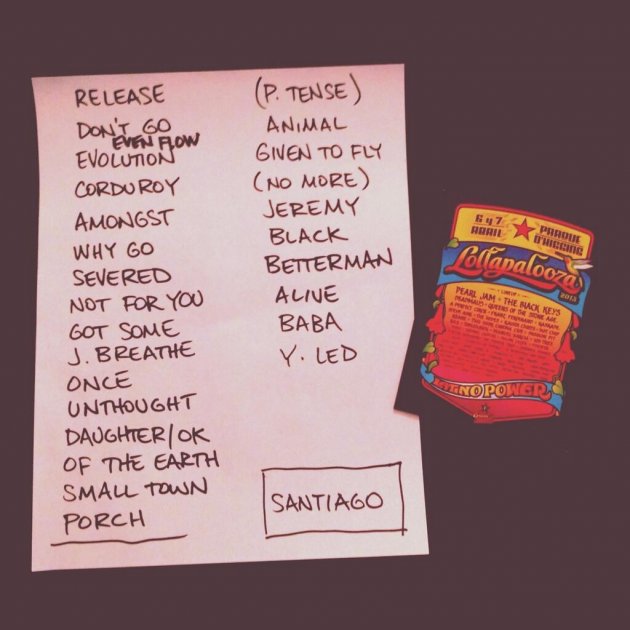 RELEASE
DON'T GO
EVEN FLOW
EVOLUTION
CORDUROY
AMONGST
WHY GO
SEVERED
NOT FOR YOU
GOT SOME
J. BREATHE
ONCE
UNTHOUGHT
DAUGHTER/OK
OF THE EARTH
SMALL TOWN
PORCH
(P. TENSE)
ANIMAL
GIVEN TO FLY
(NO MORE)
JEREMY
BLACK
BETTERMAN
ALIVE
BABA
Y. LED
SANTIAGO
6 y 7 PARQUE
ABRIL O'HIGGINS
Lollapalooza
2013
PEARL JAM • THE BLACK KEYS
DEADMAU5 • QUEENS OF THE STONE AGE
A PERFECT CIRCLE • FRANZ FERDINAND •
POWER